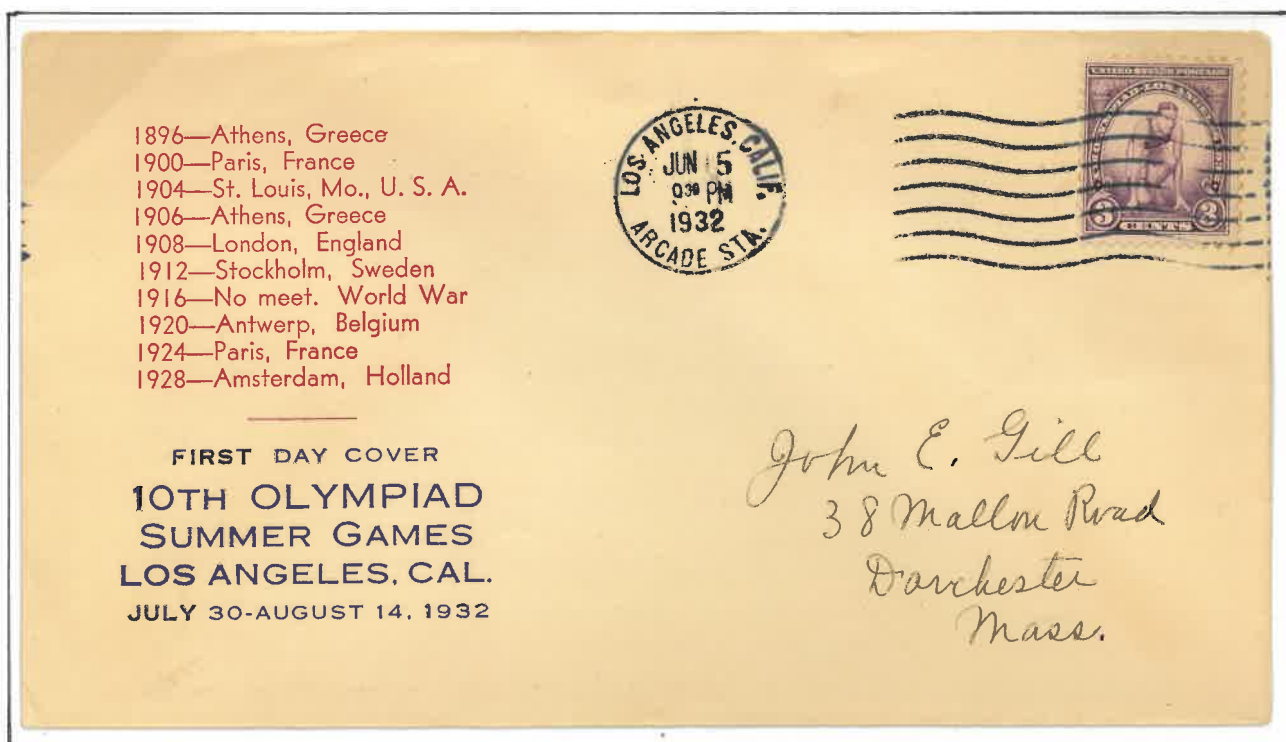 1896—Athens, Greece
1900—Paris, France
1904—St. Louis, Mo., U. S. A.
1906—Athens, Greece
1908—London, England
1912—Stockholm, Sweden
1916—No meet. World War
1920—Antwerp, Belgium
1924—Paris, France
1928—Amsterdam, Holland
FIRST DAY COVER
10TH OLYMPIAD
SUMMER GAMES
LOS ANGELES, CAL.
JULY 30-AUGUST 14, 1932
LOS ANGELES, CALIF.
JUN 15
9 30 PM
1932
ARCADE STA.
UNITED STATES POSTAGE
3 CENTS 3
John E. Gill
38 Mallon Road
Dorchester
Mass.